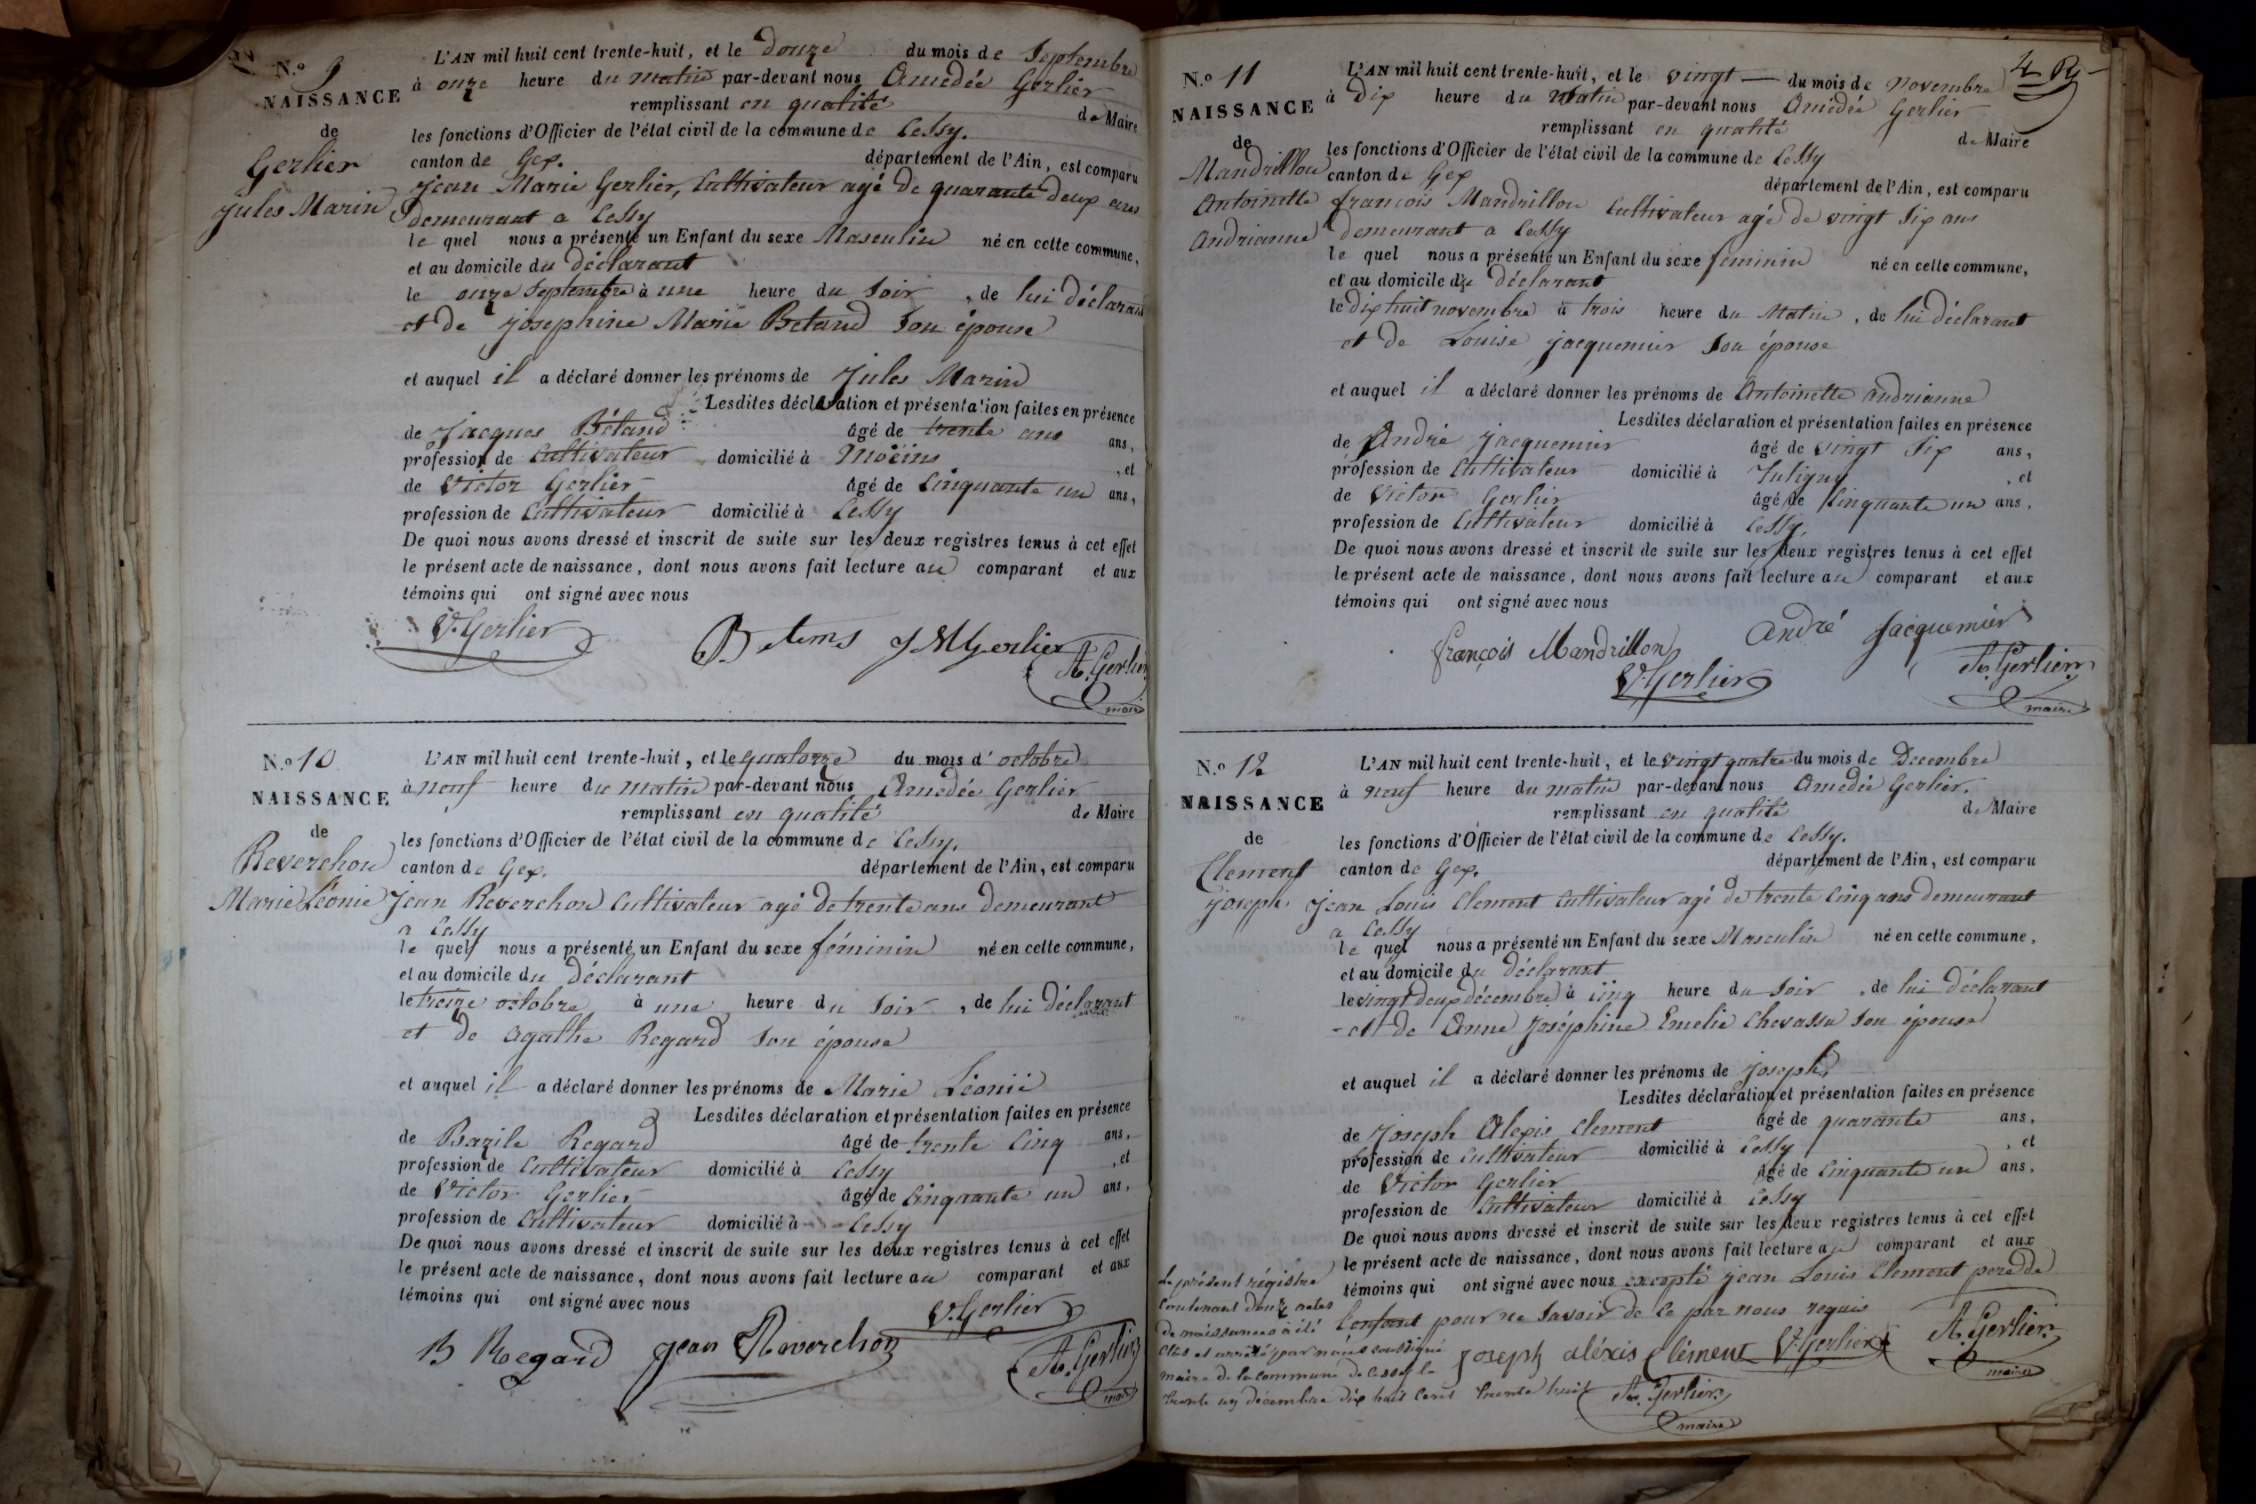 N.º 9
NAISSANCE
de
Gerlier
Jules Marin
L'AN mil huit cent trente-huit, et le douze du mois de Septembre
à onze heure du matin par-devant nous Amédée Gerlier
remplissant en qualité de Maire
les fonctions d'Officier de l'état civil de la commune de Cessy.
canton de Gex. département de l'Ain, est comparu
Jean Marie Gerlier, Cultivateur agé de quarante deux ans
demeurant a Cessy
le quel nous a présenté un Enfant du sexe Masculin né en cette commune,
et au domicile du déclarant
le onze Septembre à une heure du Soir, de lui déclarant
et de josephine Marie Betand Son épouse
et auquel il a déclaré donner les prénoms de Jules Marin
Lesdites déclaration et présentation faites en présence
de Jacques Bétand âgé de trente ans ans,
profession de Cultivateur domicilié à Moëins, et
de Victor Gerlier âgé de Cinquante un ans,
profession de Cultivateur domicilié à Cessy
De quoi nous avons dressé et inscrit de suite sur les deux registres tenus à cet effet
le présent acte de naissance, dont nous avons fait lecture au comparant et aux
témoins qui ont signé avec nous
V. Gerlier JMGerlier A. Gerlier
maire
N.º 10
NAISSANCE
de
Reverchon
Marie Léonie
L'AN mil huit cent trente-huit, et le quatorze du mois d'octobre
à neuf heure du matin par-devant nous Amédée Gerlier
remplissant en qualité de Maire
les fonctions d'Officier de l'état civil de la commune de Cessy.
canton de Gex. département de l'Ain, est comparu
Jean Reverchon Cultivateur agé de trente ans demeurant
a Cessy
le quel nous a présenté un Enfant du sexe féminin né en cette commune,
et au domicile du déclarant
le treize octobre à une heure du Soir, de lui déclarant
et de Agathe Regard Son épouse
et auquel il a déclaré donner les prénoms de Marie Léonie
Lesdites déclaration et présentation faites en présence
de Bazile Regard âgé de trente Cinq ans,
profession de Cultivateur domicilié à Cessy, et
de Victor Gerlier âgé de Cinquante un ans,
profession de Cultivateur domicilié à Cessy
De quoi nous avons dressé et inscrit de suite sur les deux registres tenus à cet effet
le présent acte de naissance, dont nous avons fait lecture au comparant et aux
témoins qui ont signé avec nous
V. Gerlier
B Regard Jean Reverchon A. Gerlier
maire
4 
N.º 11
NAISSANCE
de
Mandrillon
Antoinette
Andrianne
L'AN mil huit cent trente-huit, et le vingt du mois de Novembre
à dix heure du Matin par-devant nous Amédée Gerlier
remplissant en qualité de Maire
les fonctions d'Officier de l'état civil de la commune de Cessy
canton de Gex département de l'Ain, est comparu
francois Mandrillon Cultivateur agé de vingt Six ans
demeurant a Cessy
le quel nous a présenté un Enfant du sexe féminin né en cette commune,
et au domicile du déclarant
le dix huit novembre à trois heure du Matin, de lui déclarant
et de Louise jacquemier Son épouse
et auquel il a déclaré donner les prénoms de Antoinette andrianne
Lesdites déclaration et présentation faites en présence
de André jacquemier âgé de vingt Six ans,
profession de Cultivateur domicilié à Tutigny, et
de Victor Gerlier âgé de Cinquante un ans,
profession de Cultivateur domicilié à Cessy
De quoi nous avons dressé et inscrit de suite sur les deux registres tenus à cet effet
le présent acte de naissance, dont nous avons fait lecture au comparant et aux
témoins qui ont signé avec nous
françois Mandrillon André Jacquemier
V. Gerlier A. Gerlier
maire
N.º 12
NAISSANCE
de
Clement
joseph
L'AN mil huit cent trente-huit, et le vingt quatre du mois de Decembre
à neuf heure du matin par-devant nous Amedée Gerlier.
remplissant en qualité de Maire
les fonctions d'Officier de l'état civil de la commune de Cessy.
canton de Gex. département de l'Ain, est comparu
Jean Louis Clement Cultivateur agé de trente Cinq ans demeurant
a Cessy
le quel nous a présenté un Enfant du sexe Masculin né en cette commune,
et au domicile du déclarant
le vingt deux décembre à Cinq heure du Soir, de lui déclarant
et de Anne Joséphine Emelie Chevassu Son épouse
et auquel il a déclaré donner les prénoms de joseph
Lesdites déclaration et présentation faites en présence
de Joseph Alexis Clement âgé de quarante ans,
profession de Cultivateur domicilié à Cessy, et
de Victor Gerlier âgé de Cinquante un ans,
profession de Cultivateur domicilié à Cessy
De quoi nous avons dressé et inscrit de suite sur les deux registres tenus à cet effet
le présent acte de naissance, dont nous avons fait lecture au comparant et aux
témoins qui ont signé avec nous excepté jean Louis Clement pere de
l'enfant pour ne Savoir de Ce par nous requis
Joseph aléxis Clément V. Gerlier A. Gerlier
maire
Le présent régistre
Contenant douze actes
de naissances a été
Clos et arrêté par nous soussigné
maire de la commune de Cessy le
trente un décembre dix huit cent trente huit A. Gerlier
maire